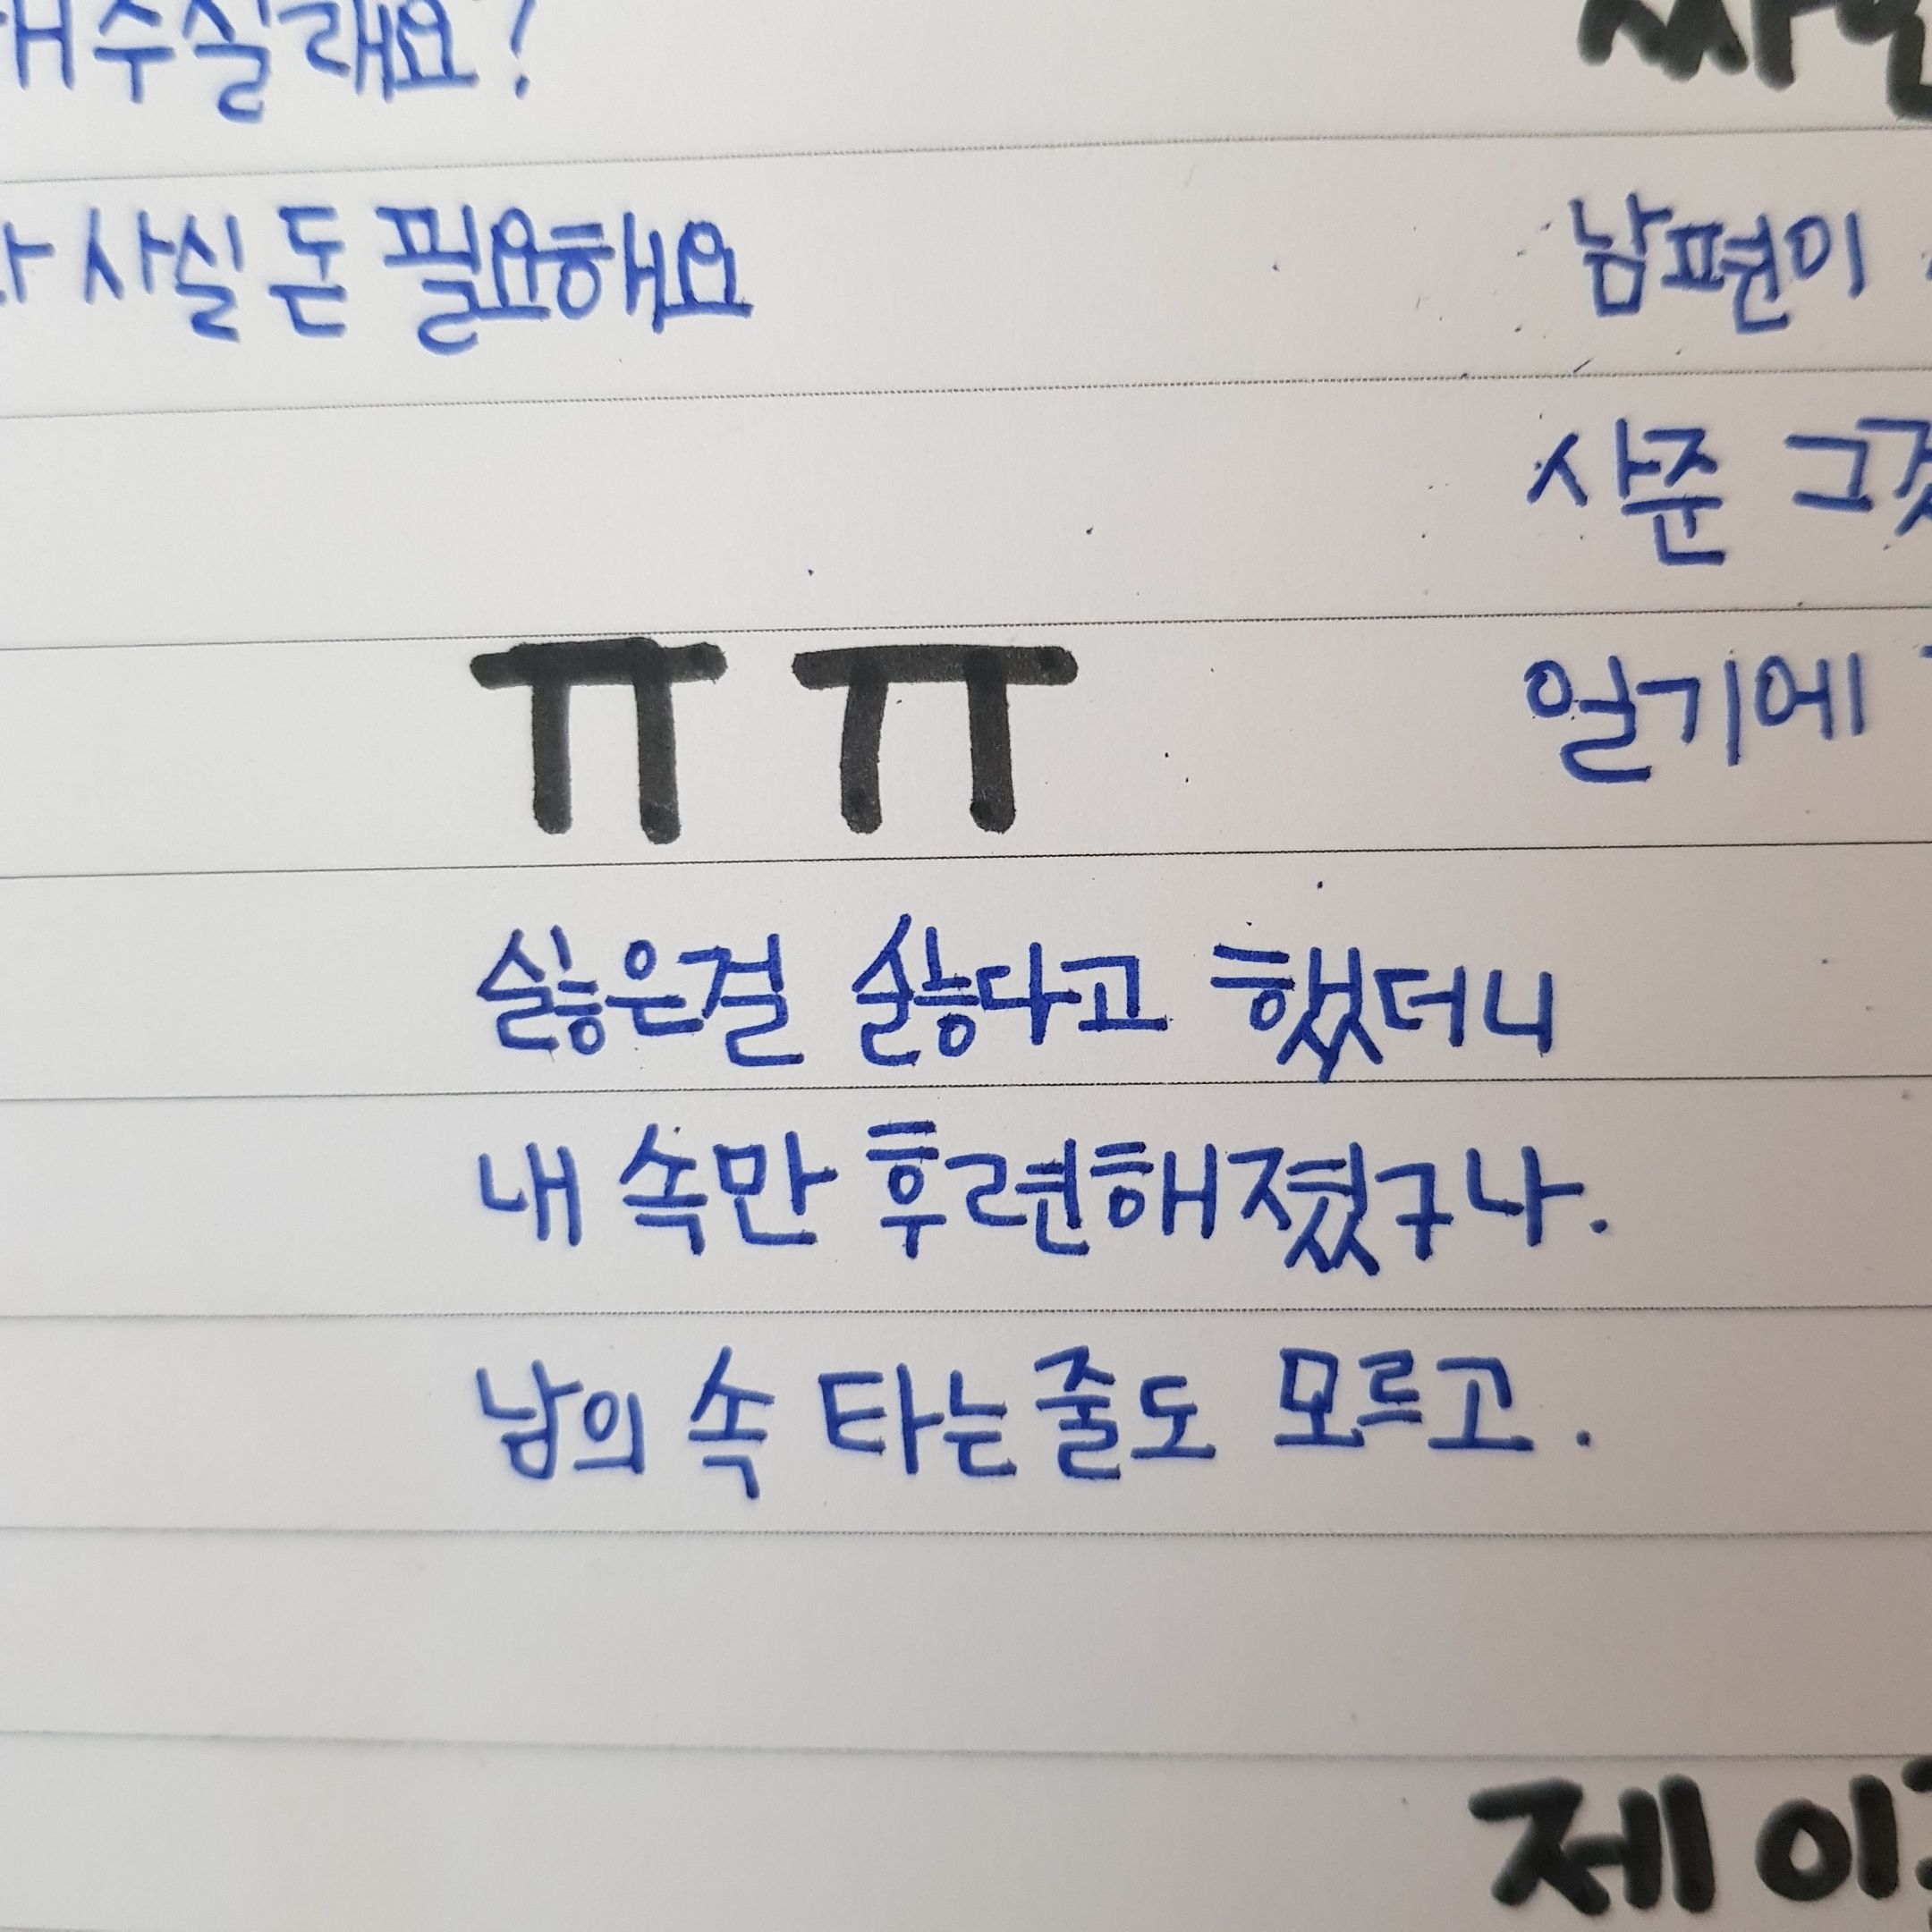 해주실래요?
사실 돈 필요해요
ㅠㅠ
싫은걸 싫다고 했더니
내 속만 후련해졌구나.
남의 속 타는줄도 모르고.
남편이
사준 그것
얼기에
제이